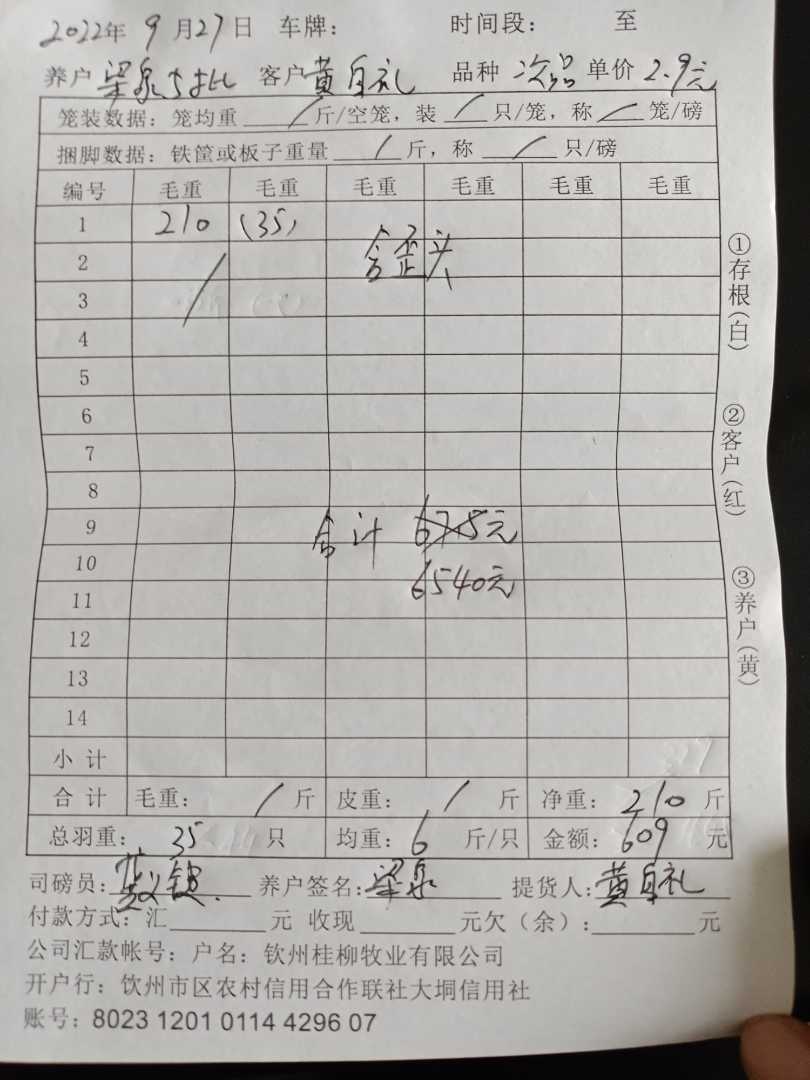 2022年 9月27日 车牌： 时间段： 至
养户 梁泉 客户 黄自礼 品种 次品 单价 2.9元
笼装数据：笼均重 / 斤/空笼，装 / 只/笼，称 / 笼/磅
捆脚数据：铁筐或板子重量 / 斤，称 / 只/磅
编号 毛重 毛重 毛重 毛重 毛重 毛重
1 210 (35)
2 含歪头
3
4
5
6
7
8
9 合计 6725元
10 6540元
11
12
13
14
小计
合计 毛重： / 斤 皮重： / 斤 净重： 210 斤
总羽重： 35 只 均重： 6 斤/只 金额： 609 元
司磅员： 养户签名：梁泉 提货人：黄自礼
付款方式：汇 元 收现 元欠（余）： 元
公司汇款帐号：户名：钦州桂柳牧业有限公司
开户行：饮州市区农村信用合作联社大垌信用社
账号：8023 1201 0114 4296 07
①存根（白）
②客户（红）
③养户（黄）